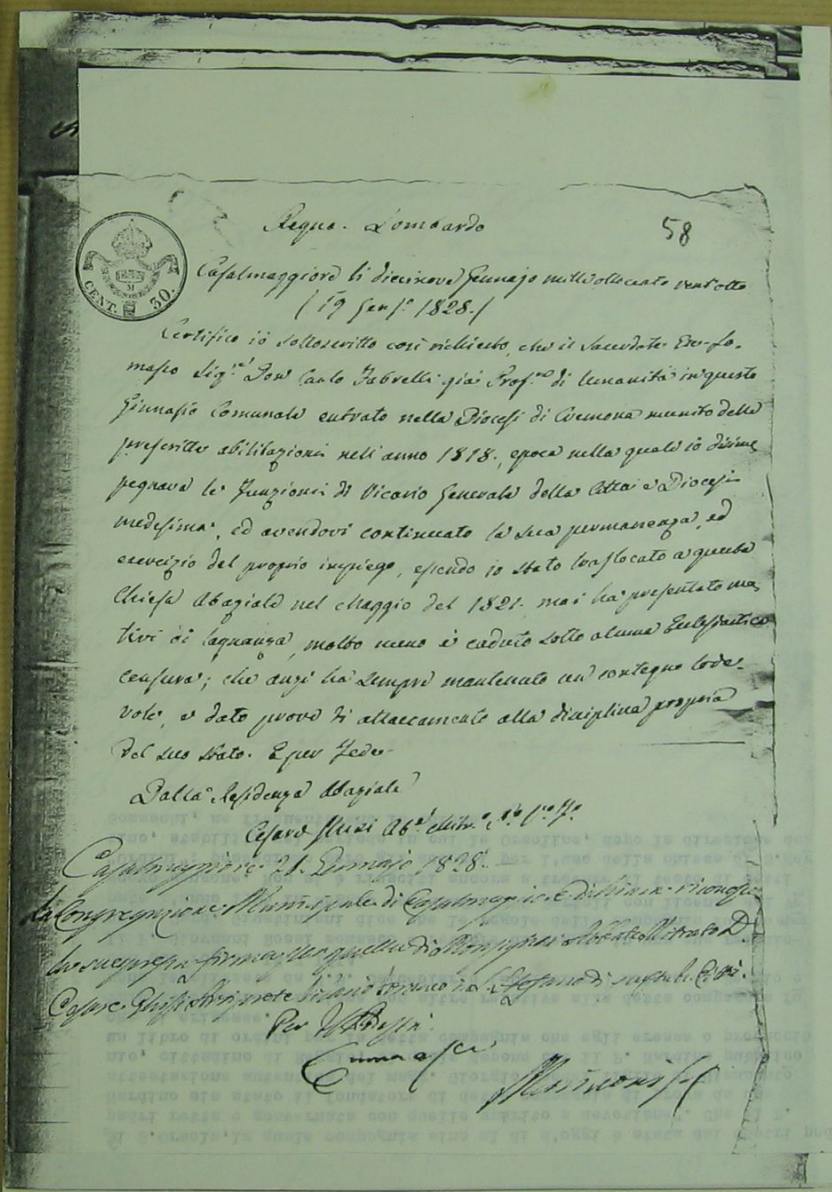 58
Regno Lombardo
CENT. 30.
Casalmaggiore li diecinove Gennajo mille ottocento vent'otto
(19 Genjo. 1828.)
Certifico io sottoscritto così richiesto, che il Sacerdote Exso-
masco Sigre. Don Carlo Fabrelli già Profre. di Umanità in questo
Ginnasio Comunale entrato nella Diocesi di Cremona munito delle
prescritte abilitazioni nell'anno 1818, epoca nella quale io disim-
pegnava le Funzioni di Vicario Generale della Città e Diocesi
medesima, ed avendovi continuato la sua permanenza, ed
esercizio del proprio impiego, essendo io stato traslocato a questa
Chiesa Abaziale nel Maggio del 1821. mai ha presentato mo-
tivi di lagnanza, molto meno è caduto sotto alcuna Ecclesiastica
censura; che anzi ha sempre mantenuto un contegno lode-
vole, e dato prove di attaccamento alla disciplina propria
del suo stato. E per Fede
Dalla Residenza Abaziale
Cesare Abe.
Casalmaggiore 21. Gennaio 1828.
La Congregazione Municipale di Casalmaggiore dichiara
la suespressa firma per quella di Monsignor Abbate Mitrato D.
Cesare Arciprete
Per